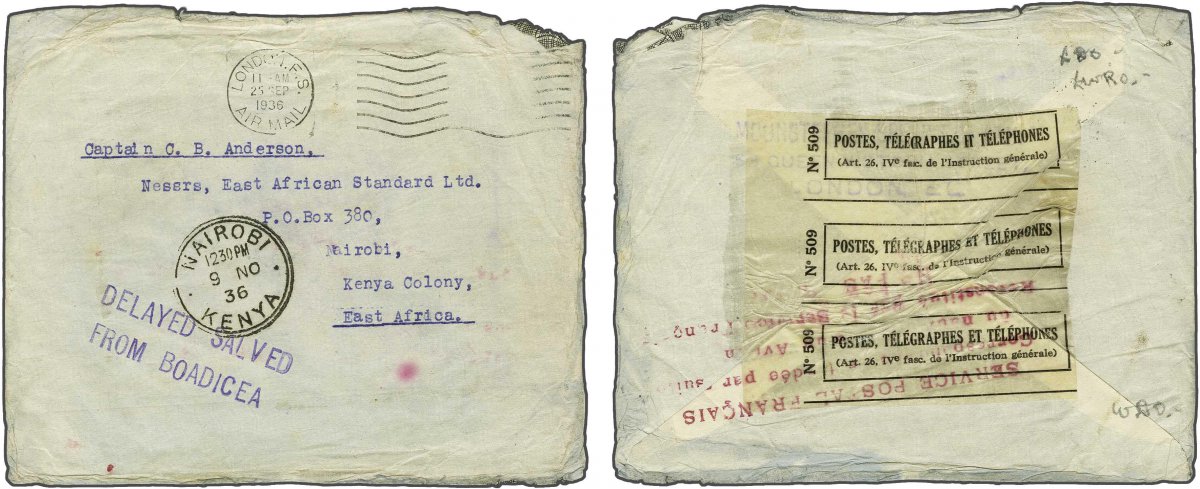 LONDON. F.S.
11 - AM
25 SEP
1936
AIR MAIL
Captain C. B. Anderson,
Nessrs, East African Standard Ltd.
P.O.Box 380,
Nairobi,
Kenya Colony,
East Africa.
NAIROBI
1230PM
9 NO
36
KENYA
DELAYED SALVED
FROM BOADICEA
LONDON. E.C.
Nº 509
POSTES, TÉLÉGRAPHES ET TÉLÉPHONES
(Art. 26, IVe fasc. de l'Instruction générale)
Nº 509
POSTES, TÉLÉGRAPHES ET TÉLÉPHONES
(Art. 26, IVe fasc. de l'Instruction générale)
Nº 509
POSTES, TÉLÉGRAPHES ET TÉLÉPHONES
(Art. 26, IVe fasc. de l'Instruction générale)
SERVICE POSTAL FRANÇAIS